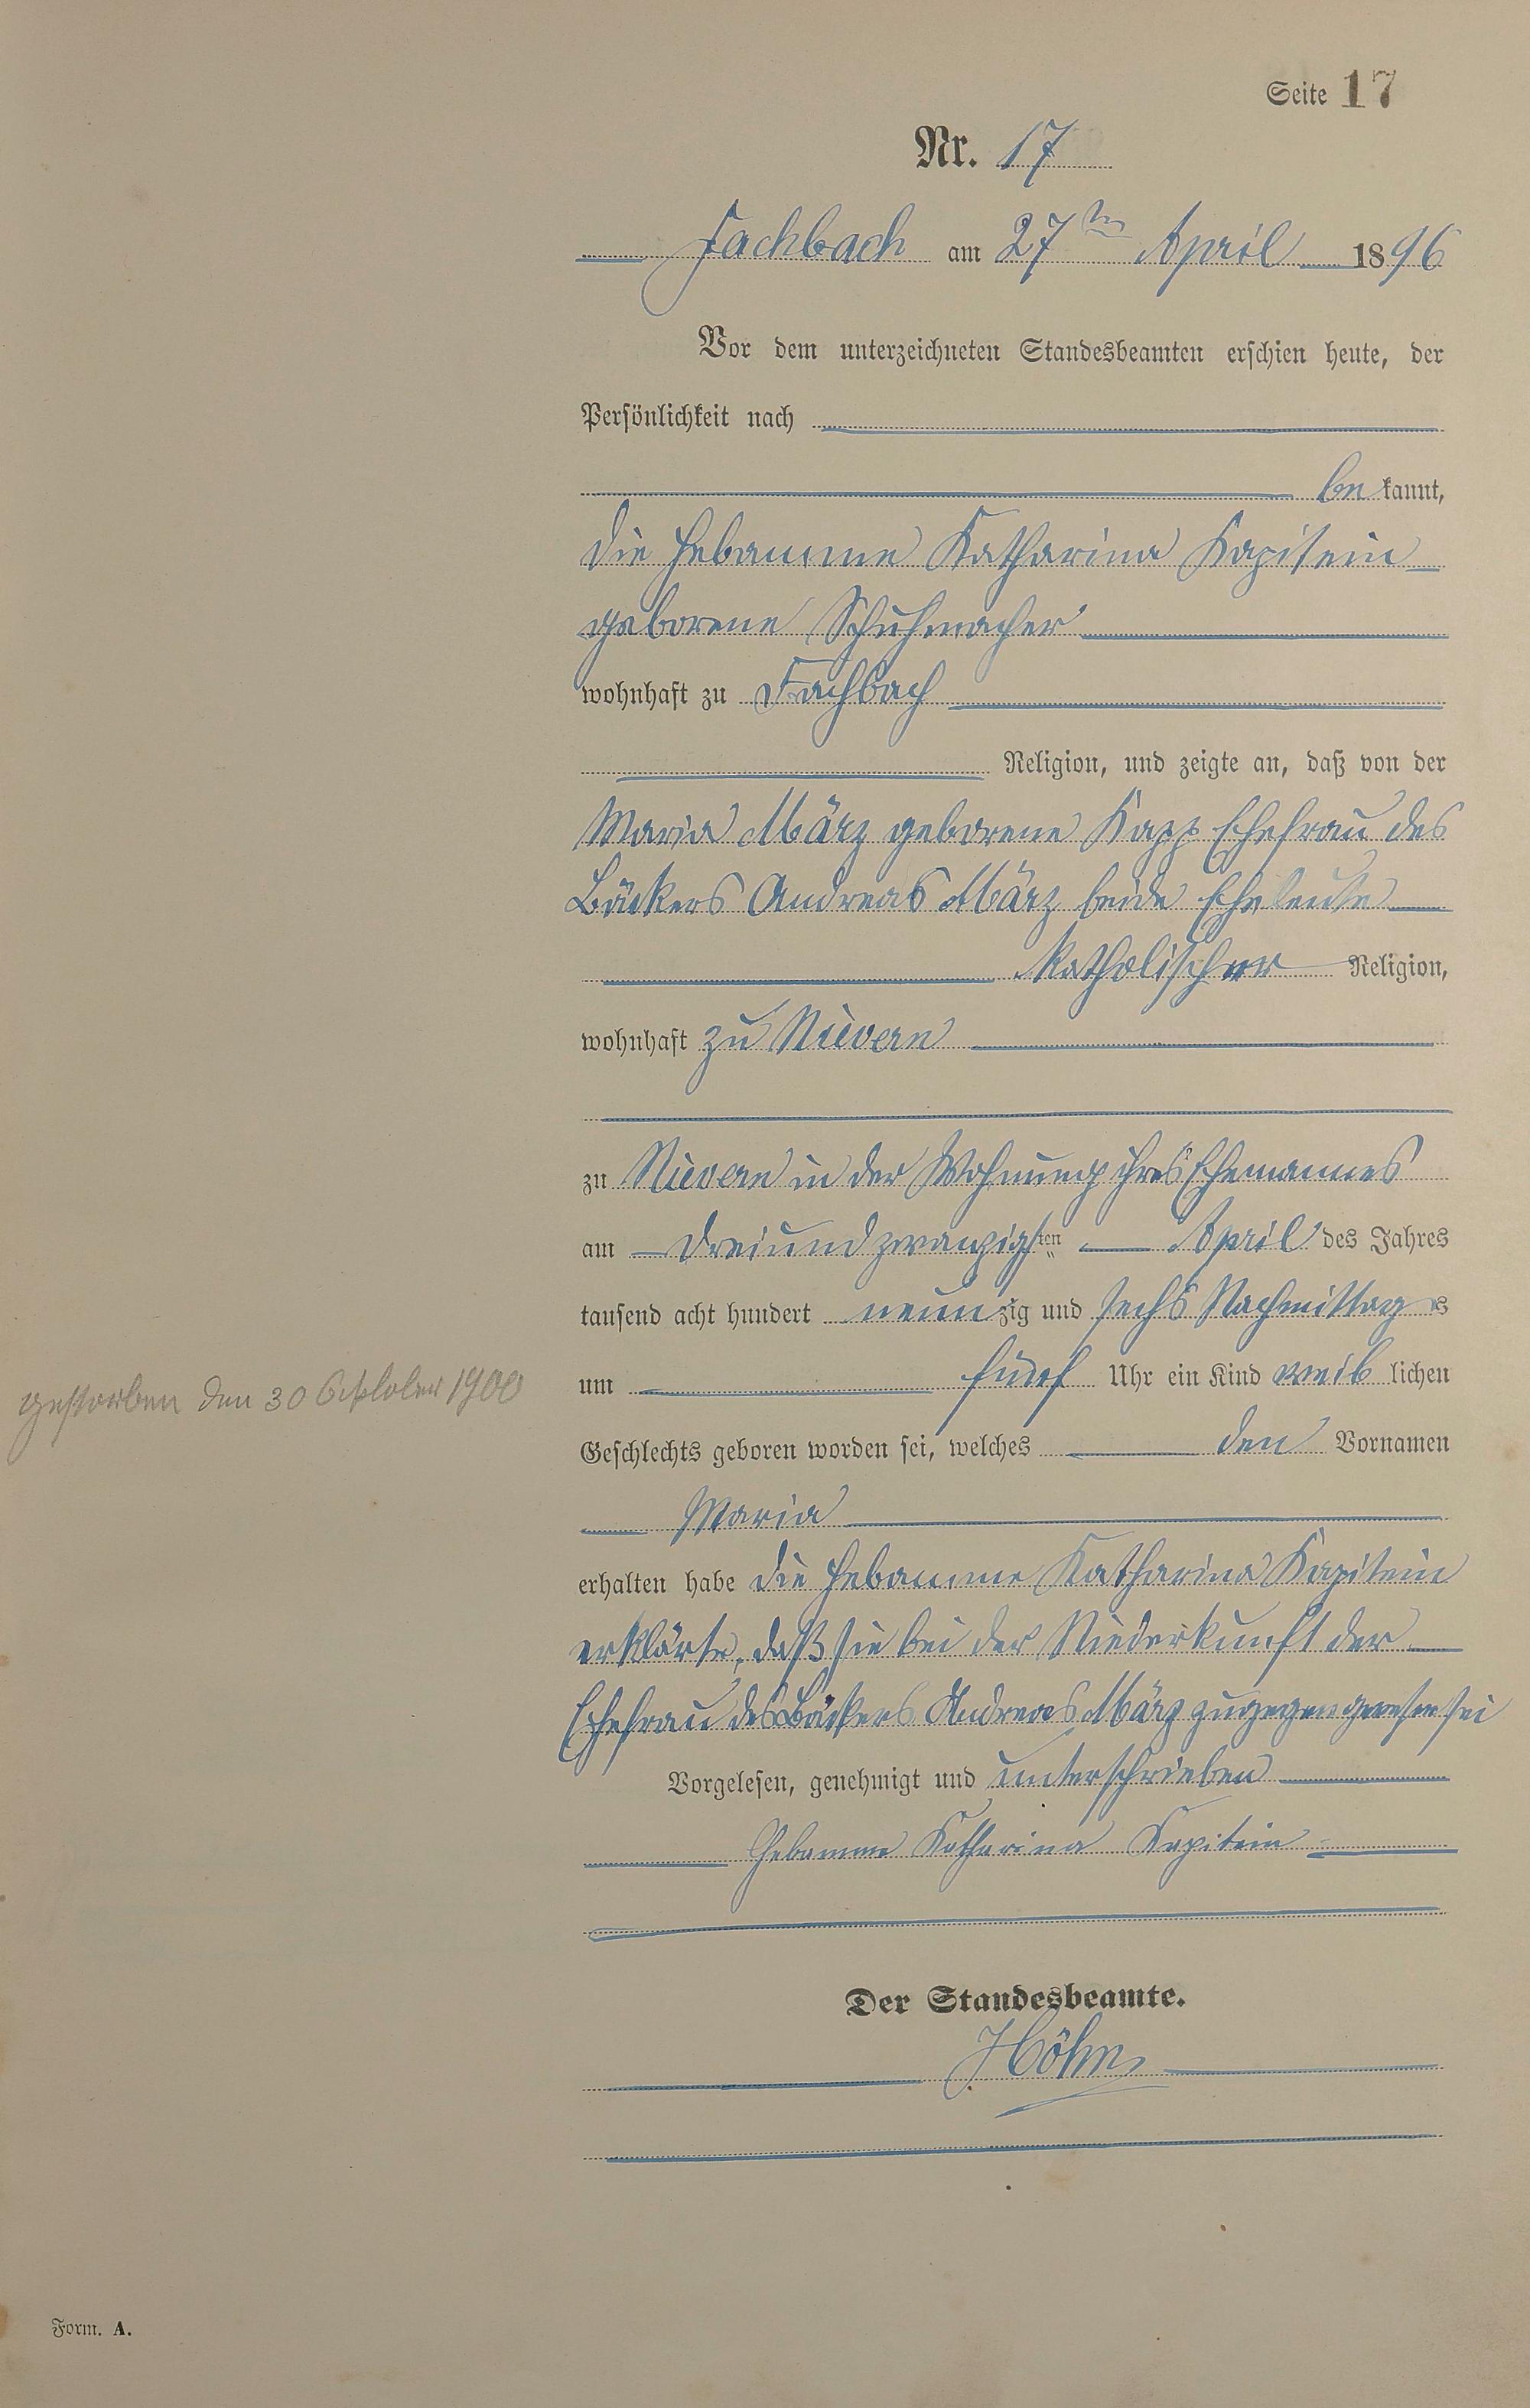 Seite 17
Nr. 17
Fachbach am 27ten April 1896
Vor dem unterzeichneten Standesbeamten erschien heute, der
Persönlichkeit nach
bekannt,
die Hebamme Katharina Kapitein
geborene Schuhmacher
wohnhaft zu Fachbach
Religion, und zeigte an, daß von der
Maria März geborene Kapp Ehefrau des
Bäckers Andreas März beide Eheleute
katholischer Religion,
wohnhaft zu Nievern
zu Nievern in der Wohnung ihres Ehemannes
am dreiundzwanzigsten April des Jahres
tausend acht hundert neunzig und sechs Nachmittags
um fünf Uhr ein Kind weiblichen
gestorben den 30 Oktober 1900
Geschlechts geboren worden sei, welches den Vornamen
Maria
erhalten habe die Hebamme Katharina Kapitein
erklärte, daß sie bei der Niederkunft der
Ehefrau des Bäckers Andreas März zugegen gewesen sei
Vorgelesen, genehmigt und unterschrieben
Hebamme Katharina Kapitein
Der Standesbeamte.
Höhn
Form. A.